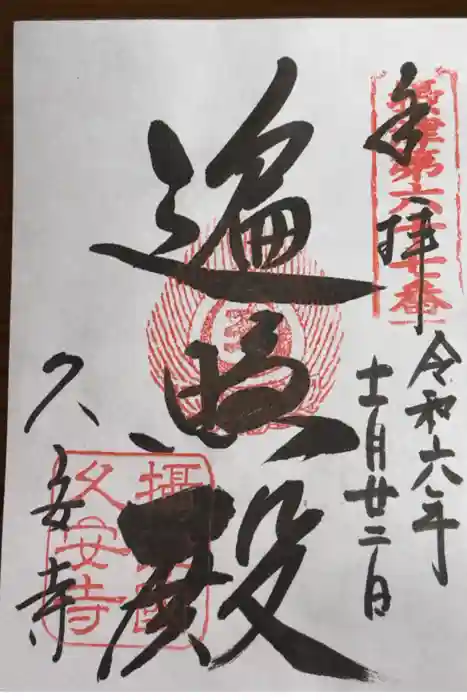 奉拝
摂津第六十七番
令和六年
十一月廿二日
遍照殿
久安寺
攝津國
久安寺